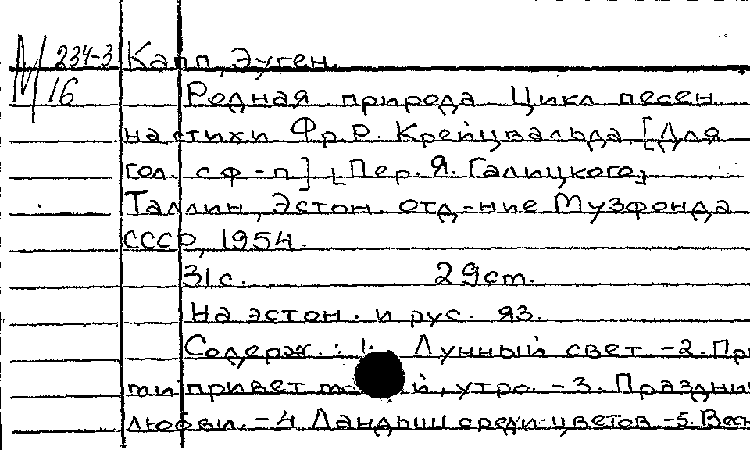 М 234-3 Капп, Эуген.
16 Родная природа Цикл песен
на стихи Фр. Р. Крейцвальда [Для
гол. с ф-п] [Пер. Я. Галицкого]
Таллин, Эстон. отд-ние Музфонда
СССР, 1954.
31 с. 29 cm.
На эстон. и рус. яз.
Содерж.: 1. Лунный свет – 2. При
ми привет утро. – 3. Праздник
любви. – 4 Ландыш среди цветов – 5. Весн